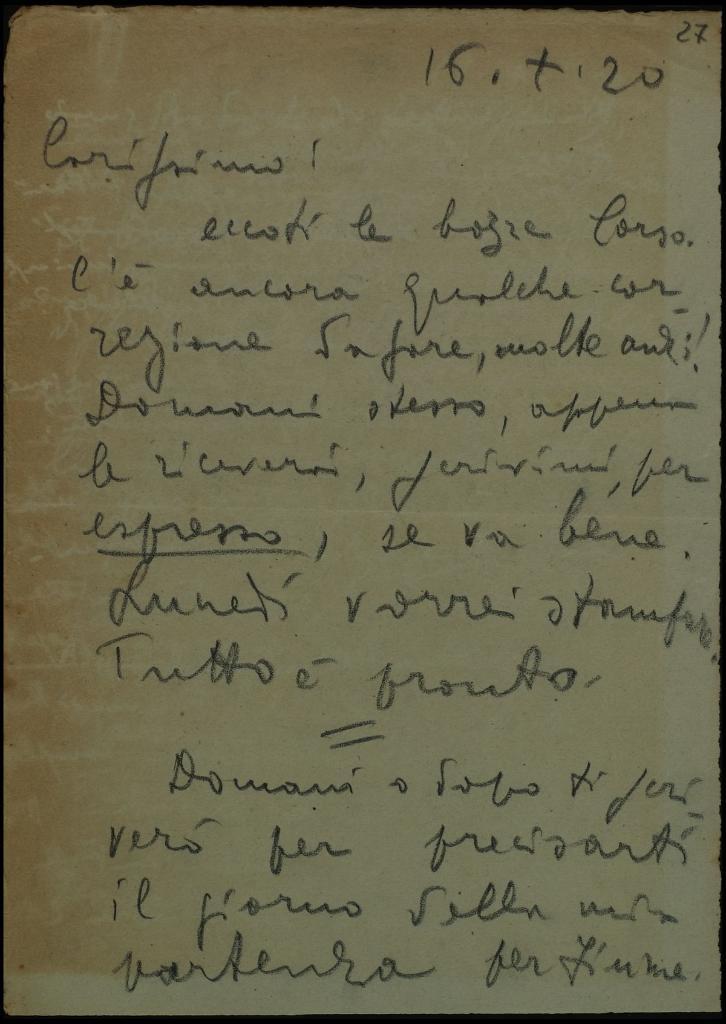 27
16. X. 20
Carissimo!
eccoti le bozze Corso.
C'è ancora qualche cor-
rezione da fare, molte anzi!
Domani stesso, appena
le riceverai, scrivimi, per
espresso, se va bene.
Lunedì vorrei stampare.
Tutto è pronto.
Domani o dopo ti scri-
verò per precisarti
il giorno della mia
partenza per Fiume.